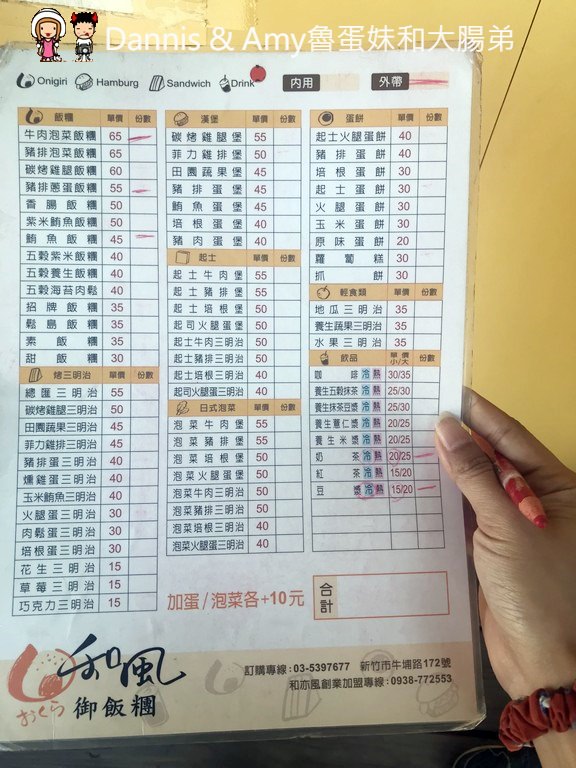 Dannis & Amy魯蛋妹和大腸弟
Onigiri Hamburg Sandwich Drink 內用 外帶
飯糰 單價 份數
牛肉泡菜飯糰 65
豬排泡菜飯糰 65
碳烤雞腿飯糰 60
豬排蔥蛋飯糰 55
香腸飯糰 50
紫米鮪魚飯糰 50
鮪魚飯糰 45
五穀紫米飯糰 40
五穀養生飯糰 40
五穀海苔肉鬆 40
招牌飯糰 35
鬆島飯糰 35
素飯糰 35
甜飯糰 30
烤三明治 單價 份數
總匯三明治 55
碳烤雞腿三明治 50
田園蔬果三明治 45
菲力雞排三明治 45
豬排蛋三明治 40
燻雞蛋三明治 40
玉米鮪魚三明治 40
火腿蛋三明治 30
肉鬆蛋三明治 30
培根蛋三明治 30
花生三明治 15
草莓三明治 15
巧克力三明治 15
漢堡 單價 份數
碳烤雞腿堡 55
菲力雞排堡 50
田園蔬果堡 45
豬排蛋堡 45
鮪魚蛋堡 45
培根蛋堡 40
豬肉蛋堡 40
起士 單價 份數
起士牛肉堡 55
起士豬排堡 55
起士培根堡 50
起司火腿蛋堡 50
起士牛肉三明治 50
起士豬排三明治 50
起士培根三明治 40
起司火腿蛋三明治 40
日式泡菜 單價 份數
泡菜牛肉堡 55
泡菜豬排堡 55
泡菜培根堡 50
泡菜火腿蛋堡 50
泡菜牛肉三明治 50
泡菜豬排三明治 50
泡菜培根三明治 40
泡菜火腿蛋三明治 40
蛋餅 單價 份數
起士火腿蛋餅 40
豬排蛋餅 40
培根蛋餅 30
起士蛋餅 30
火腿蛋餅 30
玉米蛋餅 30
原味蛋餅 20
蘿蔔糕 30
抓餅 30
輕食類 單價 份數
地瓜三明治 35
養生蔬果三明治 35
水果三明治 35
飲品 單價 小/大 份數
咖啡 冷 熱 30/35
養生五穀抹茶 冷 熱 25/30
養生抹茶豆漿 冷 熱 25/30
養生薏仁漿 冷 熱 20/25
養生米漿 冷 熱 20/25
奶茶 冷 熱 20/25
紅茶 冷 熱 15/20
豆漿 冷 熱 15/20
加蛋/泡菜各+10元
合計
和風
おくら
御飯糰
訂購專線:03-5397677 新竹市牛埔路172號
和亦風創業加盟專線:0938-772553